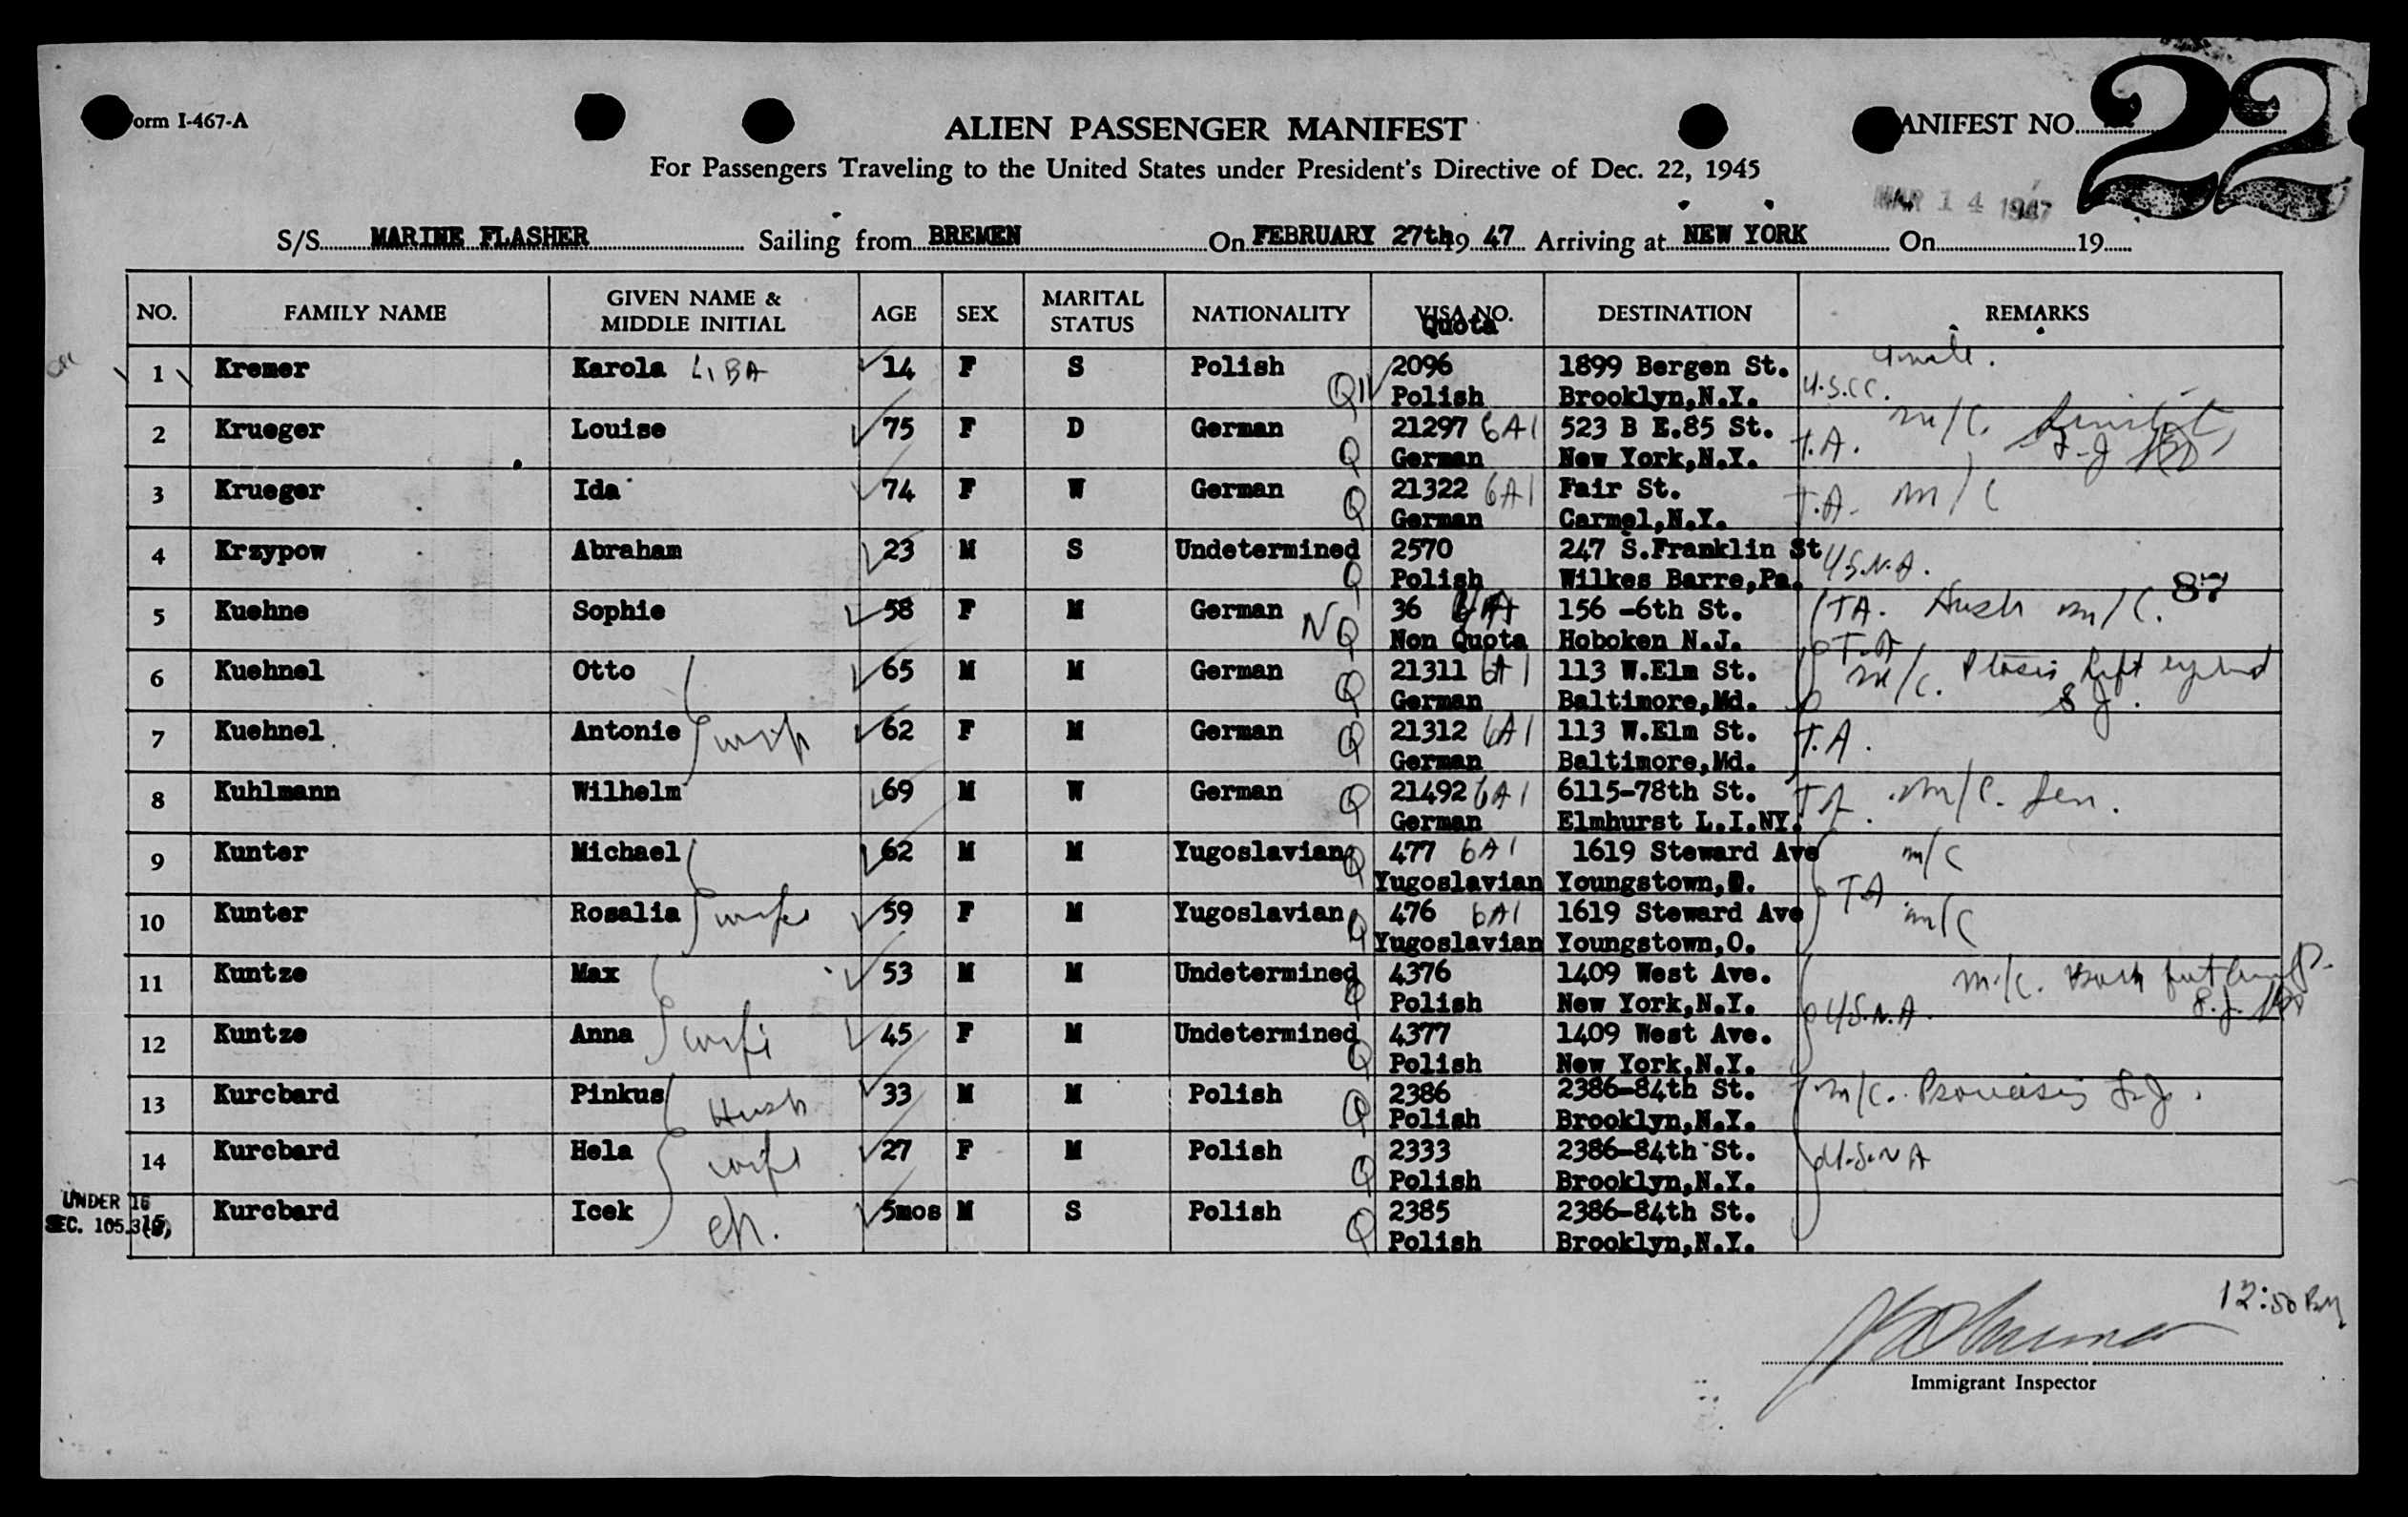 orm I-467-A
ALIEN PASSENGER MANIFEST
ANIFEST NO. 22
For Passengers Traveling to the United States under President's Directive of Dec. 22, 1945
MAR 14 1947
S/S MARINE FLASHER Sailing from BREMEN On FEBRUARY 27th 19 47 Arriving at NEW YORK On 19
NO. FAMILY NAME GIVEN NAME & MIDDLE INITIAL AGE SEX MARITAL STATUS NATIONALITY VISA NO. Quota DESTINATION REMARKS
1 Kremer Karola LIBA 14 F S Polish 2096 1899 Bergen St.
Q Polish Brooklyn,N.Y. U.S.C.C.
2 Krueger Louise 75 F D German 21297 6A1 523 B E.85 St. m/c.
Q German New York,N.Y. T.A.
3 Krueger Ida 74 F W German 21322 6A1 Fair St. T.A. m/c
Q German Carmel,N.Y.
4 Krzypow Abraham 23 M S Undetermined 2570 247 S.Franklin St U.S.N.A.
Q Polish Wilkes Barre,Pa. 87
5 Kuehne Sophie 58 F M German 36 156 -6th St. T.A. Husb m/c.
NQ Non Quota Hoboken N.J.
6 Kuehnel Otto 65 M M German 21311 6A1 113 W.Elm St. T.A. m/c. Ptosis left eyelid
Q German Baltimore,Md. S.J.
7 Kuehnel Antonie wife 62 F M German 21312 6A1 113 W.Elm St. T.A.
Q German Baltimore,Md.
8 Kuhlmann Wilhelm 69 M W German 21492 6A1 6115-78th St. T.A. m/c. Sen.
Q German Elmhurst L.I.NY.
9 Kunter Michael 62 M M Yugoslavian 477 6A1 1619 Steward Ave m/c
Q Yugoslavian Youngstown,O. TA
10 Kunter Rosalia wife 59 F M Yugoslavian 476 6A1 1619 Steward Ave m/c
Q Yugoslavian Youngstown,O.
11 Kuntze Max 53 M M Undetermined 4376 1409 West Ave. m/c.
Q Polish New York,N.Y. U.S.N.A. S.J.
12 Kuntze Anna wife 45 F M Undetermined 4377 1409 West Ave.
Q Polish New York,N.Y.
13 Kurcbard Pinkus Husb 33 M M Polish 2386 2386-84th St. m/c. Psoriasis S.J.
Q Polish Brooklyn,N.Y.
14 Kurcbard Hela wife 27 F M Polish 2333 2386-84th St. U.S.N.A
Q Polish Brooklyn,N.Y.
UNDER 16
SEC. 105.3(5)
15 Kurcbard Icek ch. 5mos M S Polish 2385 2386-84th St.
Q Polish Brooklyn,N.Y.
12:50 PM
Immigrant Inspector